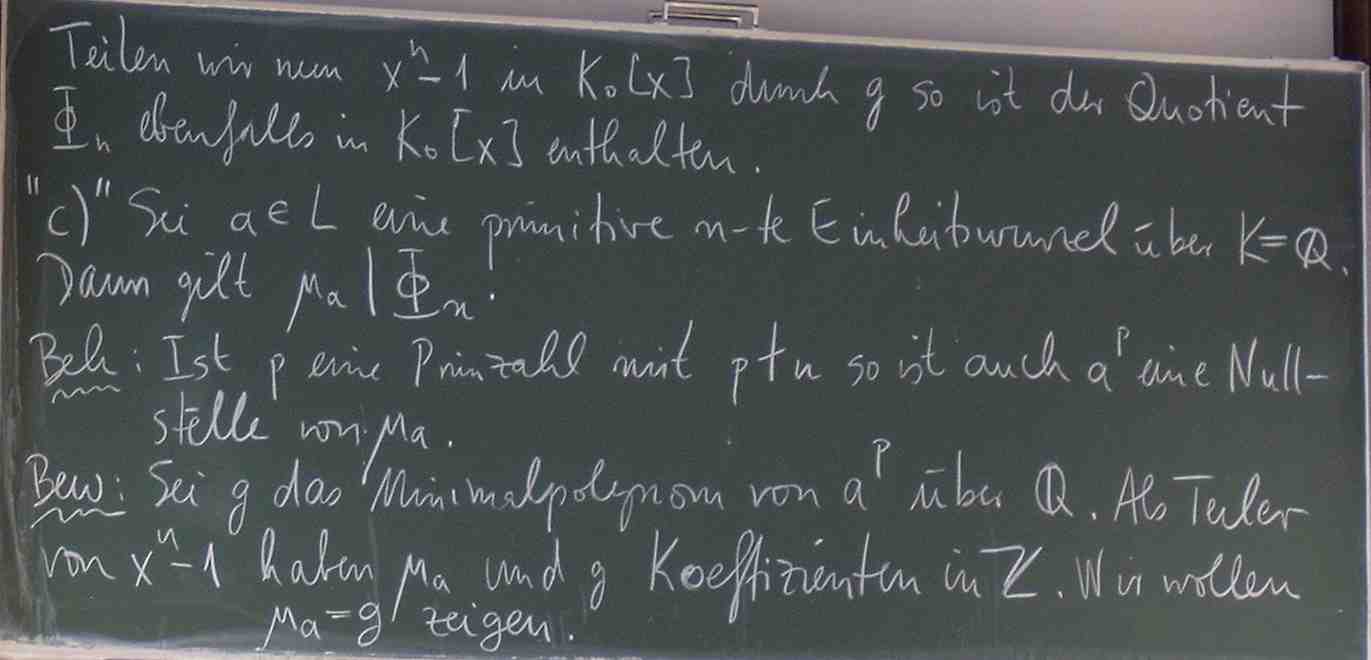 Teilen wir nun xⁿ-1 in K₀[x] durch g so ist der Quotient
Φₙ ebenfalls in K₀[x] enthalten.
"c)" Sei a∈L eine primitive n-te Einheitswurzel über K=ℚ.
Dann gilt μₐ | Φₙ.
Beh: Ist p eine Primzahl mit p∤n so ist auch aᵖ eine Null-
stelle von μₐ.
Bew: Sei g das Minimalpolynom von aᵖ über ℚ. Als Teiler
von xⁿ-1 haben μₐ und g Koeffizienten in ℤ. Wir wollen
μₐ=g zeigen.